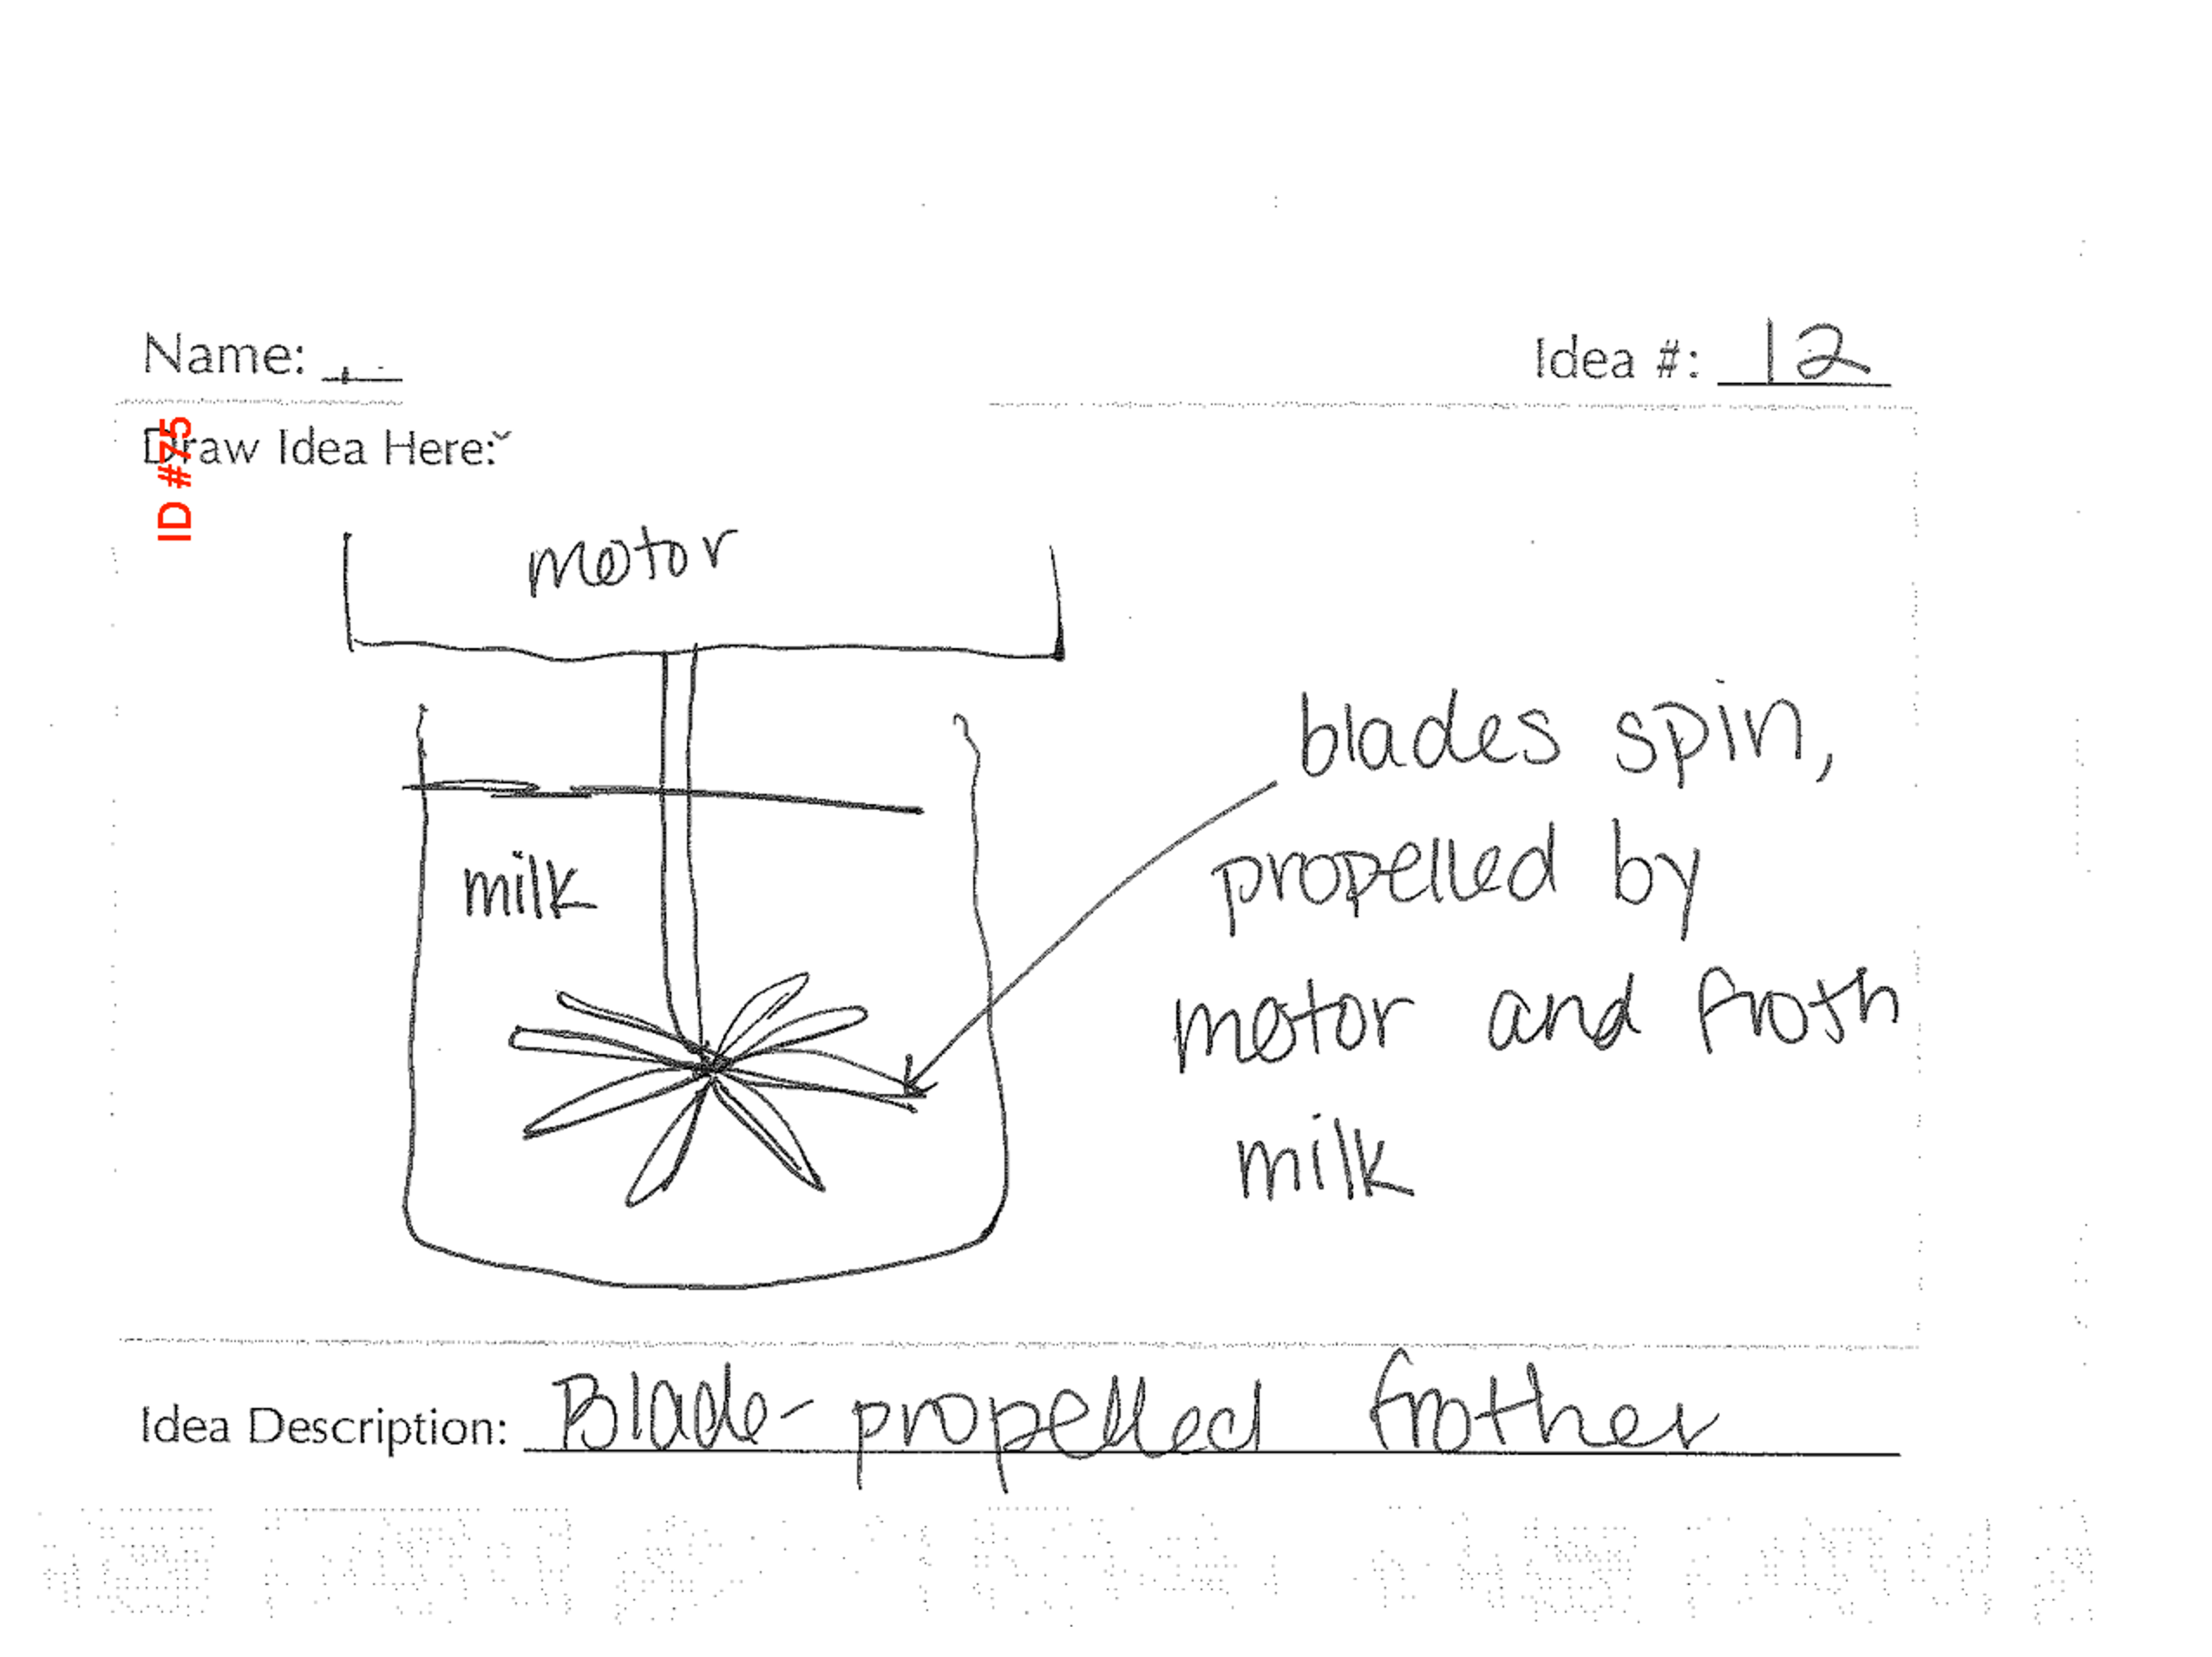 Name:
Idea #: 12
ID #75
Draw Idea Here:
motor
milk
blades spin,
propelled by
motor and froth
milk
Idea Description: Blade-propelled frother